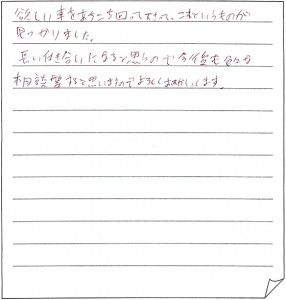 欲しい車をあちこち回ってきって、これというものが
見つかりました。
長い付き合いになると思うので今後も色々
相談等すると思いますのでよろしくお願いします。